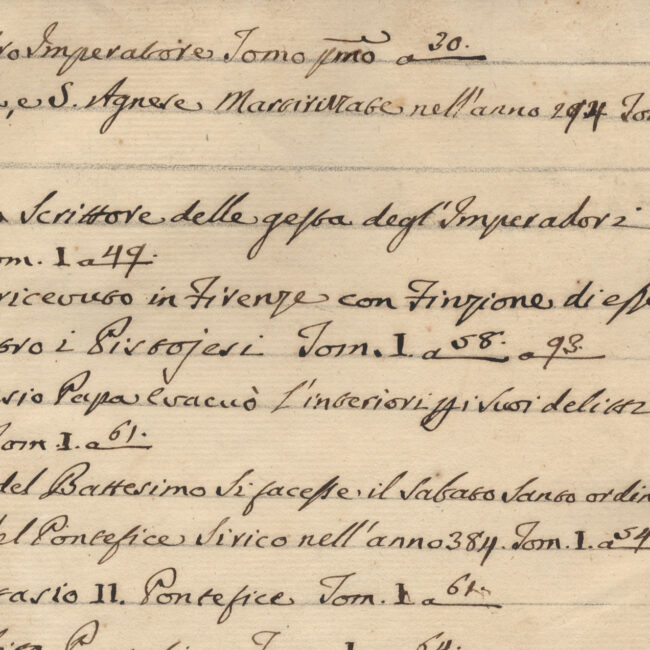 ro Imperatore Tomo pmo a 30.
, e S. Agnese Martirizzate nell'anno 294 To
Scrittore delle gesta degl'Imperadori
om. I a 49.
ricevuto in Firenze con Finzione di esse
tro i Pistojesi Tom. I a 58. a 93.
sio Papa Evacuò l'interiori pi suoi delitti
Tom. I. a 61.
del Battesimo si facesse il Sabato Santo ordin
el Pontefice Sirico nell'anno 384. Tom. I. a 54
tasio II. Pontefice Tom. I a 61.
Tom. I a 64.